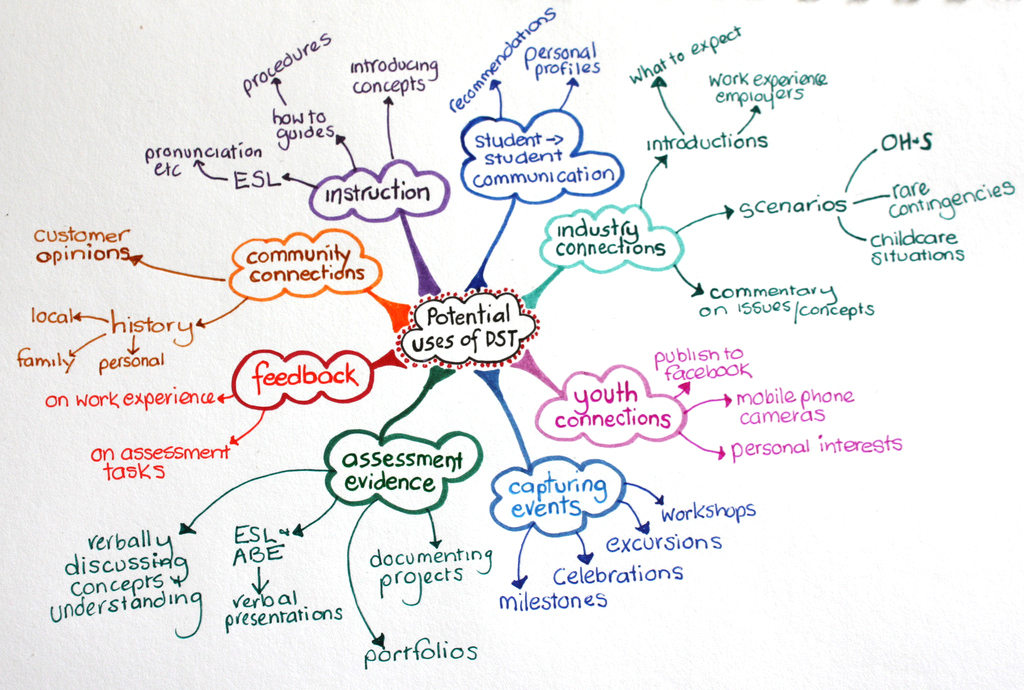 Potential
uses of DST
instruction
procedures
how to
guides
introducing
concepts
ESL
pronunciation
etc
student →
student
communication
recommendations
personal
profiles
industry
connections
introductions
what to expect
work experience
employers
scenarios
OH+S
rare
contingencies
childcare
situations
commentary
on issues/concepts
youth
connections
publish to
facebook
mobile phone
cameras
personal interests
capturing
events
workshops
excursions
celebrations
milestones
assessment
evidence
documenting
projects
portfolios
ESL +
ABE
verbal
presentations
verbally
discussing
concepts +
understanding
feedback
on work experience
on assessment
tasks
community
connections
customer
opinions
history
local
family
personal